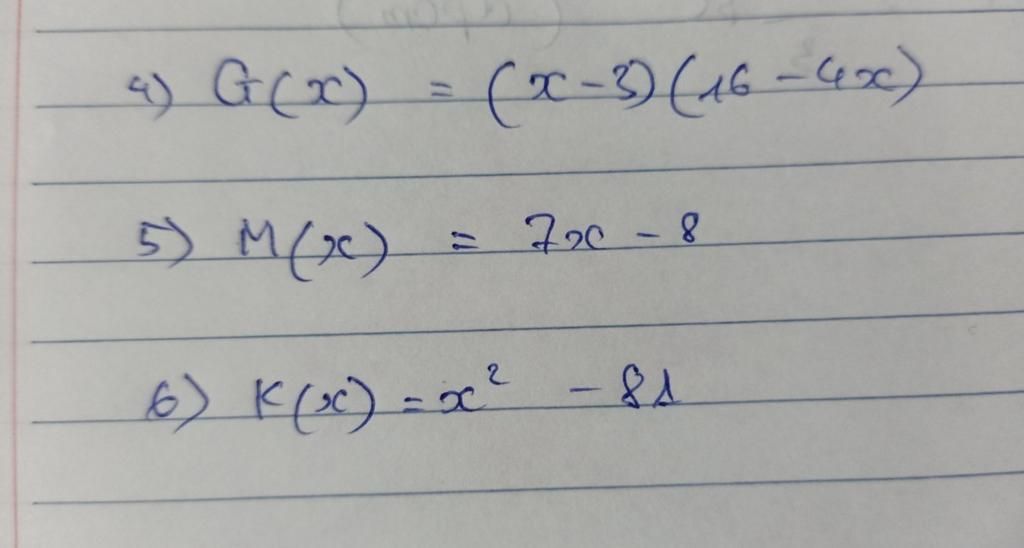 4) G(x) = (x-3)(16-4x)
5) M(x) = 7x - 8
6) K(x) = x² - 81